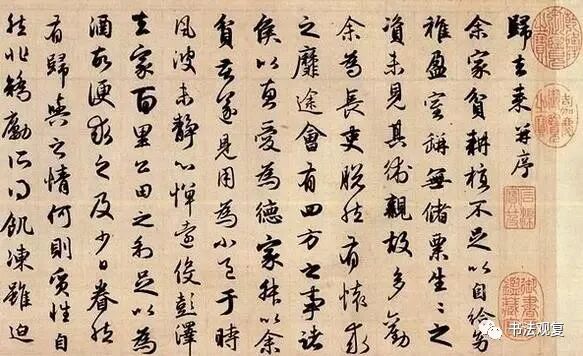 歸去来并序
余家貧耕植不足以自給幼
稚盈室缾無儲粟生〻之
資未見其術親故多勸
余為長吏脫然有懷求
之靡途會有四方之事諸
侯以惠愛為德家叔以余
貧苦遂見用為小邑于時
風波未靜心憚遠役彭澤
去家百里公田之利足以為
酒故便求之及少日眷然
有歸與之情何則質性自
然非矯勵所得飢凍雖迫
书法观复